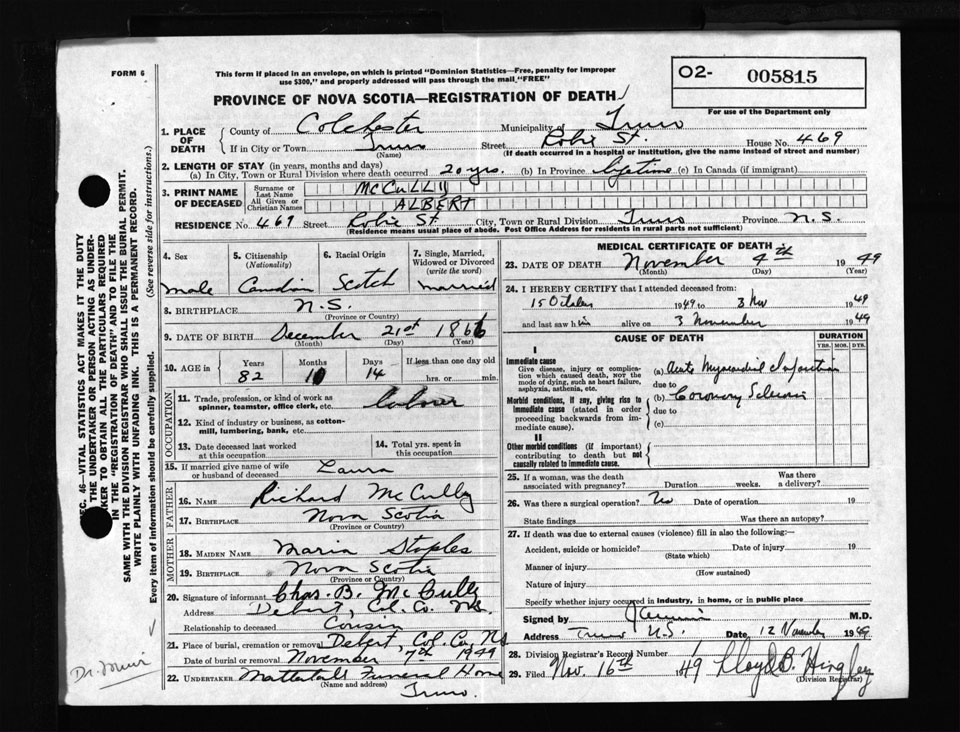 FORM 6
This form if placed in an envelope, on which is printed "Dominion Statistics—Free, penalty for improper
use $300," and properly addressed will pass through the mail "FREE"
O2- 005815
For use of the Department only
PROVINCE OF NOVA SCOTIA—REGISTRATION OF DEATH
1. PLACE OF DEATH
County of Colchester Municipality of Truro
If in City or Town Truro Street Robie St House No. 469
(Name) (If death occurred in a hospital or institution, give the name instead of street and number)
2. LENGTH OF STAY (in years, months and days)
(a) In City, Town or Rural Division where death occurred 20 yrs. (b) In Province lifetime (c) In Canada (if immigrant)
3. PRINT NAME OF DECEASED
Surname or Last Name McCULLY
All Given or Christian Names ALBERT
RESIDENCE No. 469 Street Robie St City, Town or Rural Division Truro Province N.S.
(Residence means usual place of abode. Post Office Address for residents in rural parts not sufficient)
4. Sex
male
5. Citizenship
(Nationality)
Canadian
6. Racial Origin
Scotch
7. Single, Married, Widowed or Divorced
(write the word)
married
8. BIRTHPLACE N.S.
(Province or Country)
9. DATE OF BIRTH December 21st 1866
(Month) (Day) (Year)
10. AGE in Years Months Days If less than one day old
82 10 14 hrs. or min.
OCCUPATION
11. Trade, profession, or kind of work as
spinner, teamster, office clerk, etc. Labourer
12. Kind of industry or business, as cotton-
mill, lumbering, bank, etc.
13. Date deceased last worked
at this occupation
14. Total yrs. spent in
this occupation
15. If married give name of wife
or husband of deceased Laura
FATHER
16. NAME Richard McCully
17. BIRTHPLACE Nova Scotia
(Province or Country)
MOTHER
18. MAIDEN NAME Maria Staples
19. BIRTHPLACE Nova Scotia
(Province or Country)
20. Signature of informant Chas. B. McCully
Address Debert, Col. Co. N.S.
Relationship to deceased Cousin
21. Place of burial, cremation or removal Debert, Col. Co, N.S
Date of burial or removal November 7th 1949
22. UNDERTAKER Mattatall Funeral Home
(Name and address) Truro.
MEDICAL CERTIFICATE OF DEATH
23. DATE OF DEATH November 4th 1949
(Month) (Day) (Year)
24. I HEREBY CERTIFY that I attended deceased from:
15 October 1949 to 3 Nov 1949
and last saw him alive on 3 November 1949
CAUSE OF DEATH
DURATION
YRS. MOS. DYS.
I
Immediate cause
Give disease, injury or complica-
tion which caused death, NOT the
mode of dying, such as heart failure,
asphyxia, asthenia, etc.
(a) Acute Myocardial Infarction
due to
Morbid conditions, if any, giving rise to
immediate cause (stated in order
proceeding backwards from im-
mediate cause).
(b) Coronary Sclerosis
due to
(c)
II
Other morbid conditions (if important)
contributing to death but not
causally related to immediate cause.
25. If a woman, was the death
associated with pregnancy? Duration weeks.
Was there
a delivery?
26. Was there a surgical operation? No Date of operation 19
State findings Was there an autopsy?
27. If death was due to external causes (violence) fill in also the following:—
Accident, suicide or homicide? Date of injury 19
(State which)
Manner of injury
(How sustained)
Nature of injury
Specify whether injury occurred in industry, in home, or in public place
Signed by M.D.
Address Truro N.S. Date, 12 November 1949
28. Division Registrar's Record Number
29. Filed Nov. 16th 1949 Lloyd B. Hingley
(Division Registrar)
SEC. 46—VITAL STATISTICS ACT MAKES IT THE DUTY
OF THE UNDERTAKER OR PERSON ACTING AS UNDER-
TAKER TO OBTAIN ALL THE PARTICULARS REQUIRED
IN THE "REGISTRATION OF DEATH" AND TO FILE THE
SAME WITH THE DIVISION REGISTRAR WHO SHALL ISSUE THE BURIAL PERMIT.
WRITE PLAINLY WITH UNFADING INK. THIS IS A PERMANENT RECORD.
Every item of information should be carefully supplied. (See reverse side for instructions.)
Dr. Muir